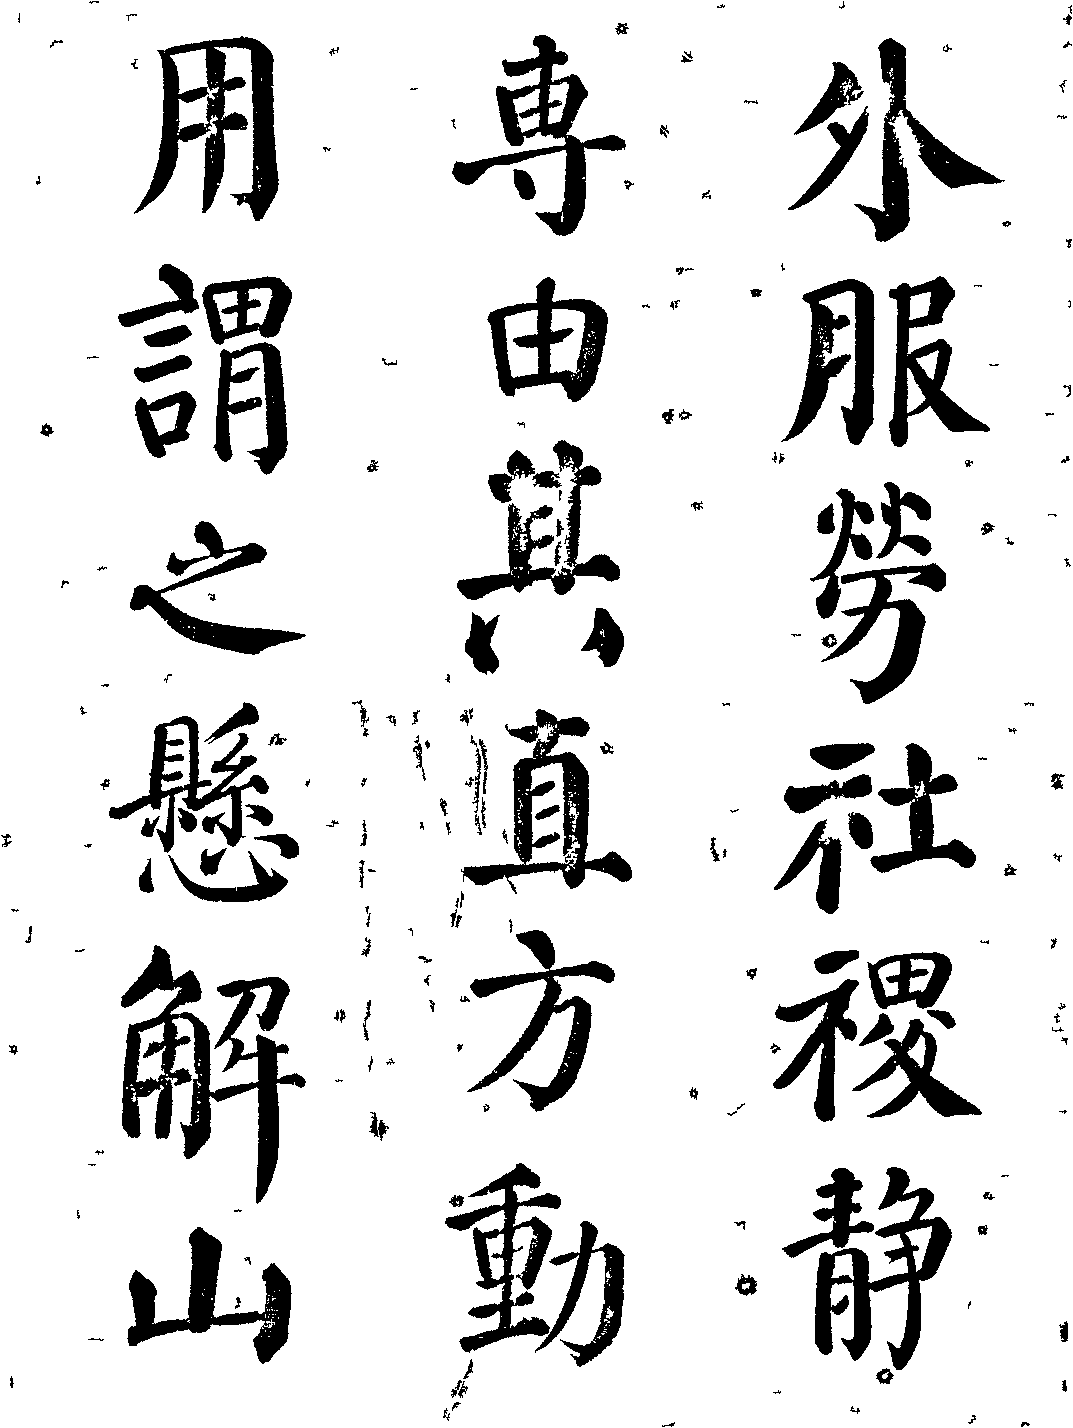 外服勞社稷静
専由其直方動
用謂之懸解山